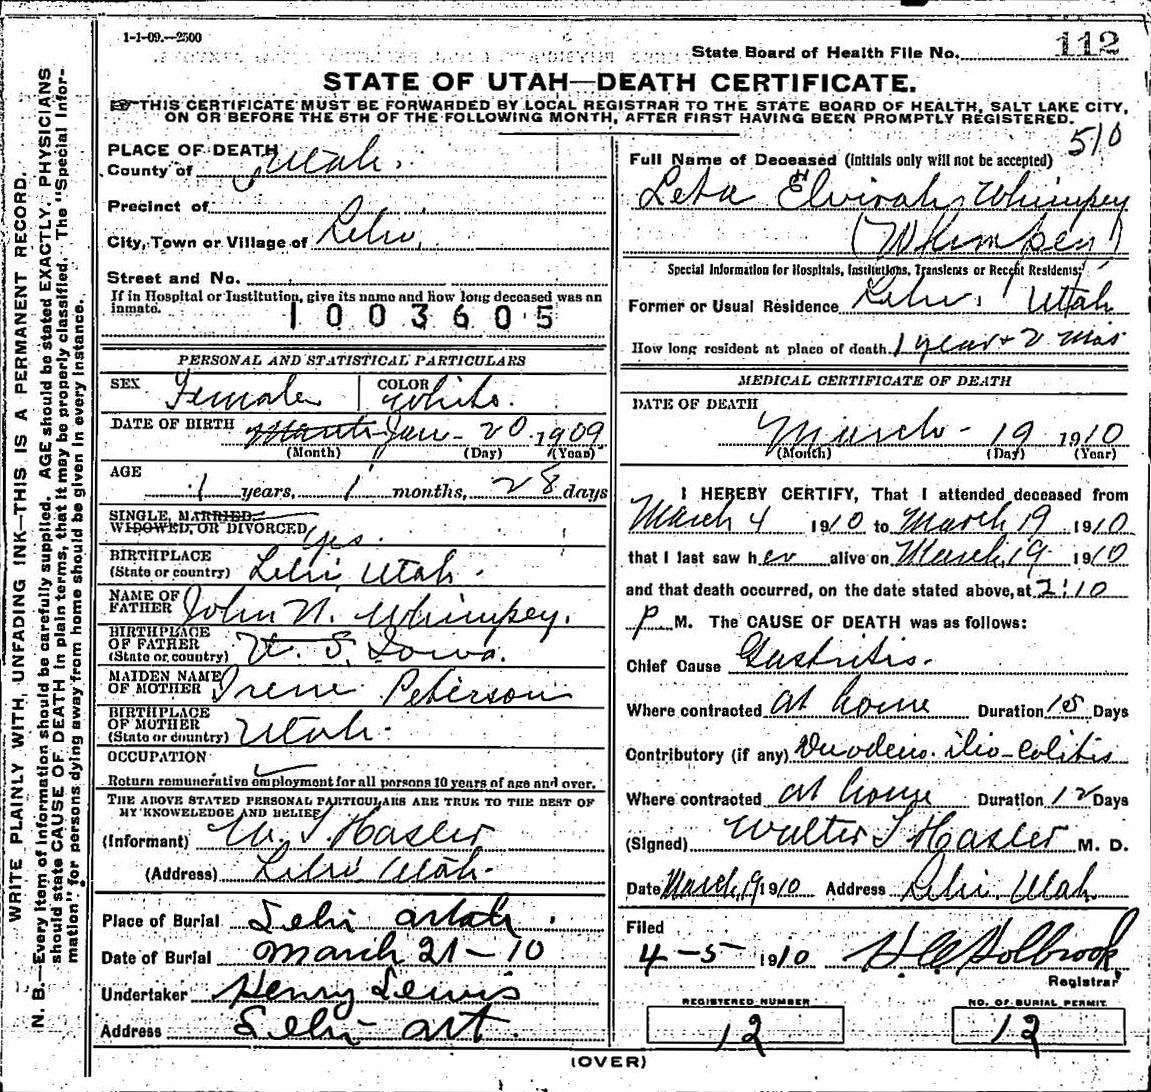 1-1-09.—2500
State Board of Health File No. 112
STATE OF UTAH—DEATH CERTIFICATE.
THIS CERTIFICATE MUST BE FORWARDED BY LOCAL REGISTRAR TO THE STATE BOARD OF HEALTH, SALT LAKE CITY,
ON OR BEFORE THE 5TH OF THE FOLLOWING MONTH, AFTER FIRST HAVING BEEN PROMPTLY REGISTERED.
510
PLACE OF DEATH
County of Utah.
Precinct of
City, Town or Village of Lehi,
Street and No.
If in Hospital or Institution, give its name and how long deceased was an
inmate.
1003605
PERSONAL AND STATISTICAL PARTICULARS
SEX Female COLOR White.
DATE OF BIRTH March Jan - 20 1909
(Month) (Day) (Year)
AGE
1 years, 1 months, 28 days
SINGLE, MARRIED,
WIDOWED, OR DIVORCED yes.
BIRTHPLACE
(State or country) Lehi Utah.
NAME OF
FATHER John N. Whimpey.
BIRTHPLACE
OF FATHER
(State or country) U. S. Iowa.
MAIDEN NAME
OF MOTHER Irene Peterson
BIRTHPLACE
OF MOTHER
(State or country) Utah.
OCCUPATION
Return remunerative employment for all persons 10 years of age and over.
THE ABOVE STATED PERSONAL PARTICULARS ARE TRUE TO THE BEST OF
MY KNOWELEDGE AND BELIEF
(Informant) W. T Hasler
(Address) Lehi Utah.
Place of Burial Lehi Utah.
Date of Burial March 21 - 10
Undertaker Henry Lewis
Address Lehi ut.
Full Name of Deceased (Initials only will not be accepted)
Leta Elvirah Whimpey
(Whimpey)
Special Information for Hospitals, Institutions, Transients or Recent Residents;
Former or Usual Residence Lehi. Utah
How long resident at place of death 1 year + 2 mos
MEDICAL CERTIFICATE OF DEATH
DATE OF DEATH
March - 19 1910
(Month) (Day) (Year)
I HEREBY CERTIFY, That I attended deceased from
March 4 1910 to March 19 1910
that I last saw her alive on March 19 1910
and that death occurred, on the date stated above, at 2:10
P. M. The CAUSE OF DEATH was as follows:
Chief Cause Gastritis.
Where contracted at home Duration 15 Days
Contributory (if any) Duodeno. ilio-colitis
Where contracted at home Duration 12 Days
(Signed) Walter T Hasler M. D.
Date March 19 1910 Address Lehi Utah
Filed
4-5 1910 H C Holbrook
Registrar
REGISTERED NUMBER NO. OF BURIAL PERMIT
12 12
(OVER)
WRITE PLAINLY WITH, UNFADING INK—THIS IS A PERMANENT RECORD.
N. B.—Every item of information should be carefully supplied. AGE should be stated EXACTLY. PHYSICIANS
should state CAUSE OF DEATH in plain terms, that it may be properly classified. The "Special Infor-
mation" for persons dying away from home should be given in every instance.